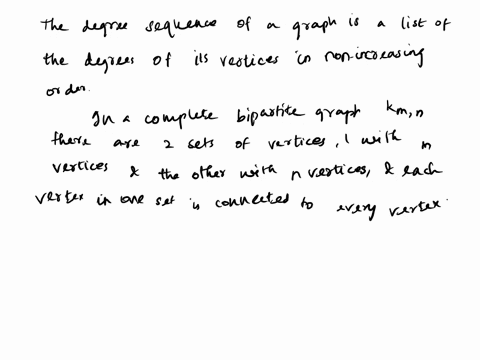 The degree sequence of a graph is a list of
the degrees of its vertices in nonincreasing
order.
In a complete bipartite graph Km,n
there are 2 sets of vertices, 1 with m
vertices & the other with n vertices, & each
vertex in one set is connected to every vertex.